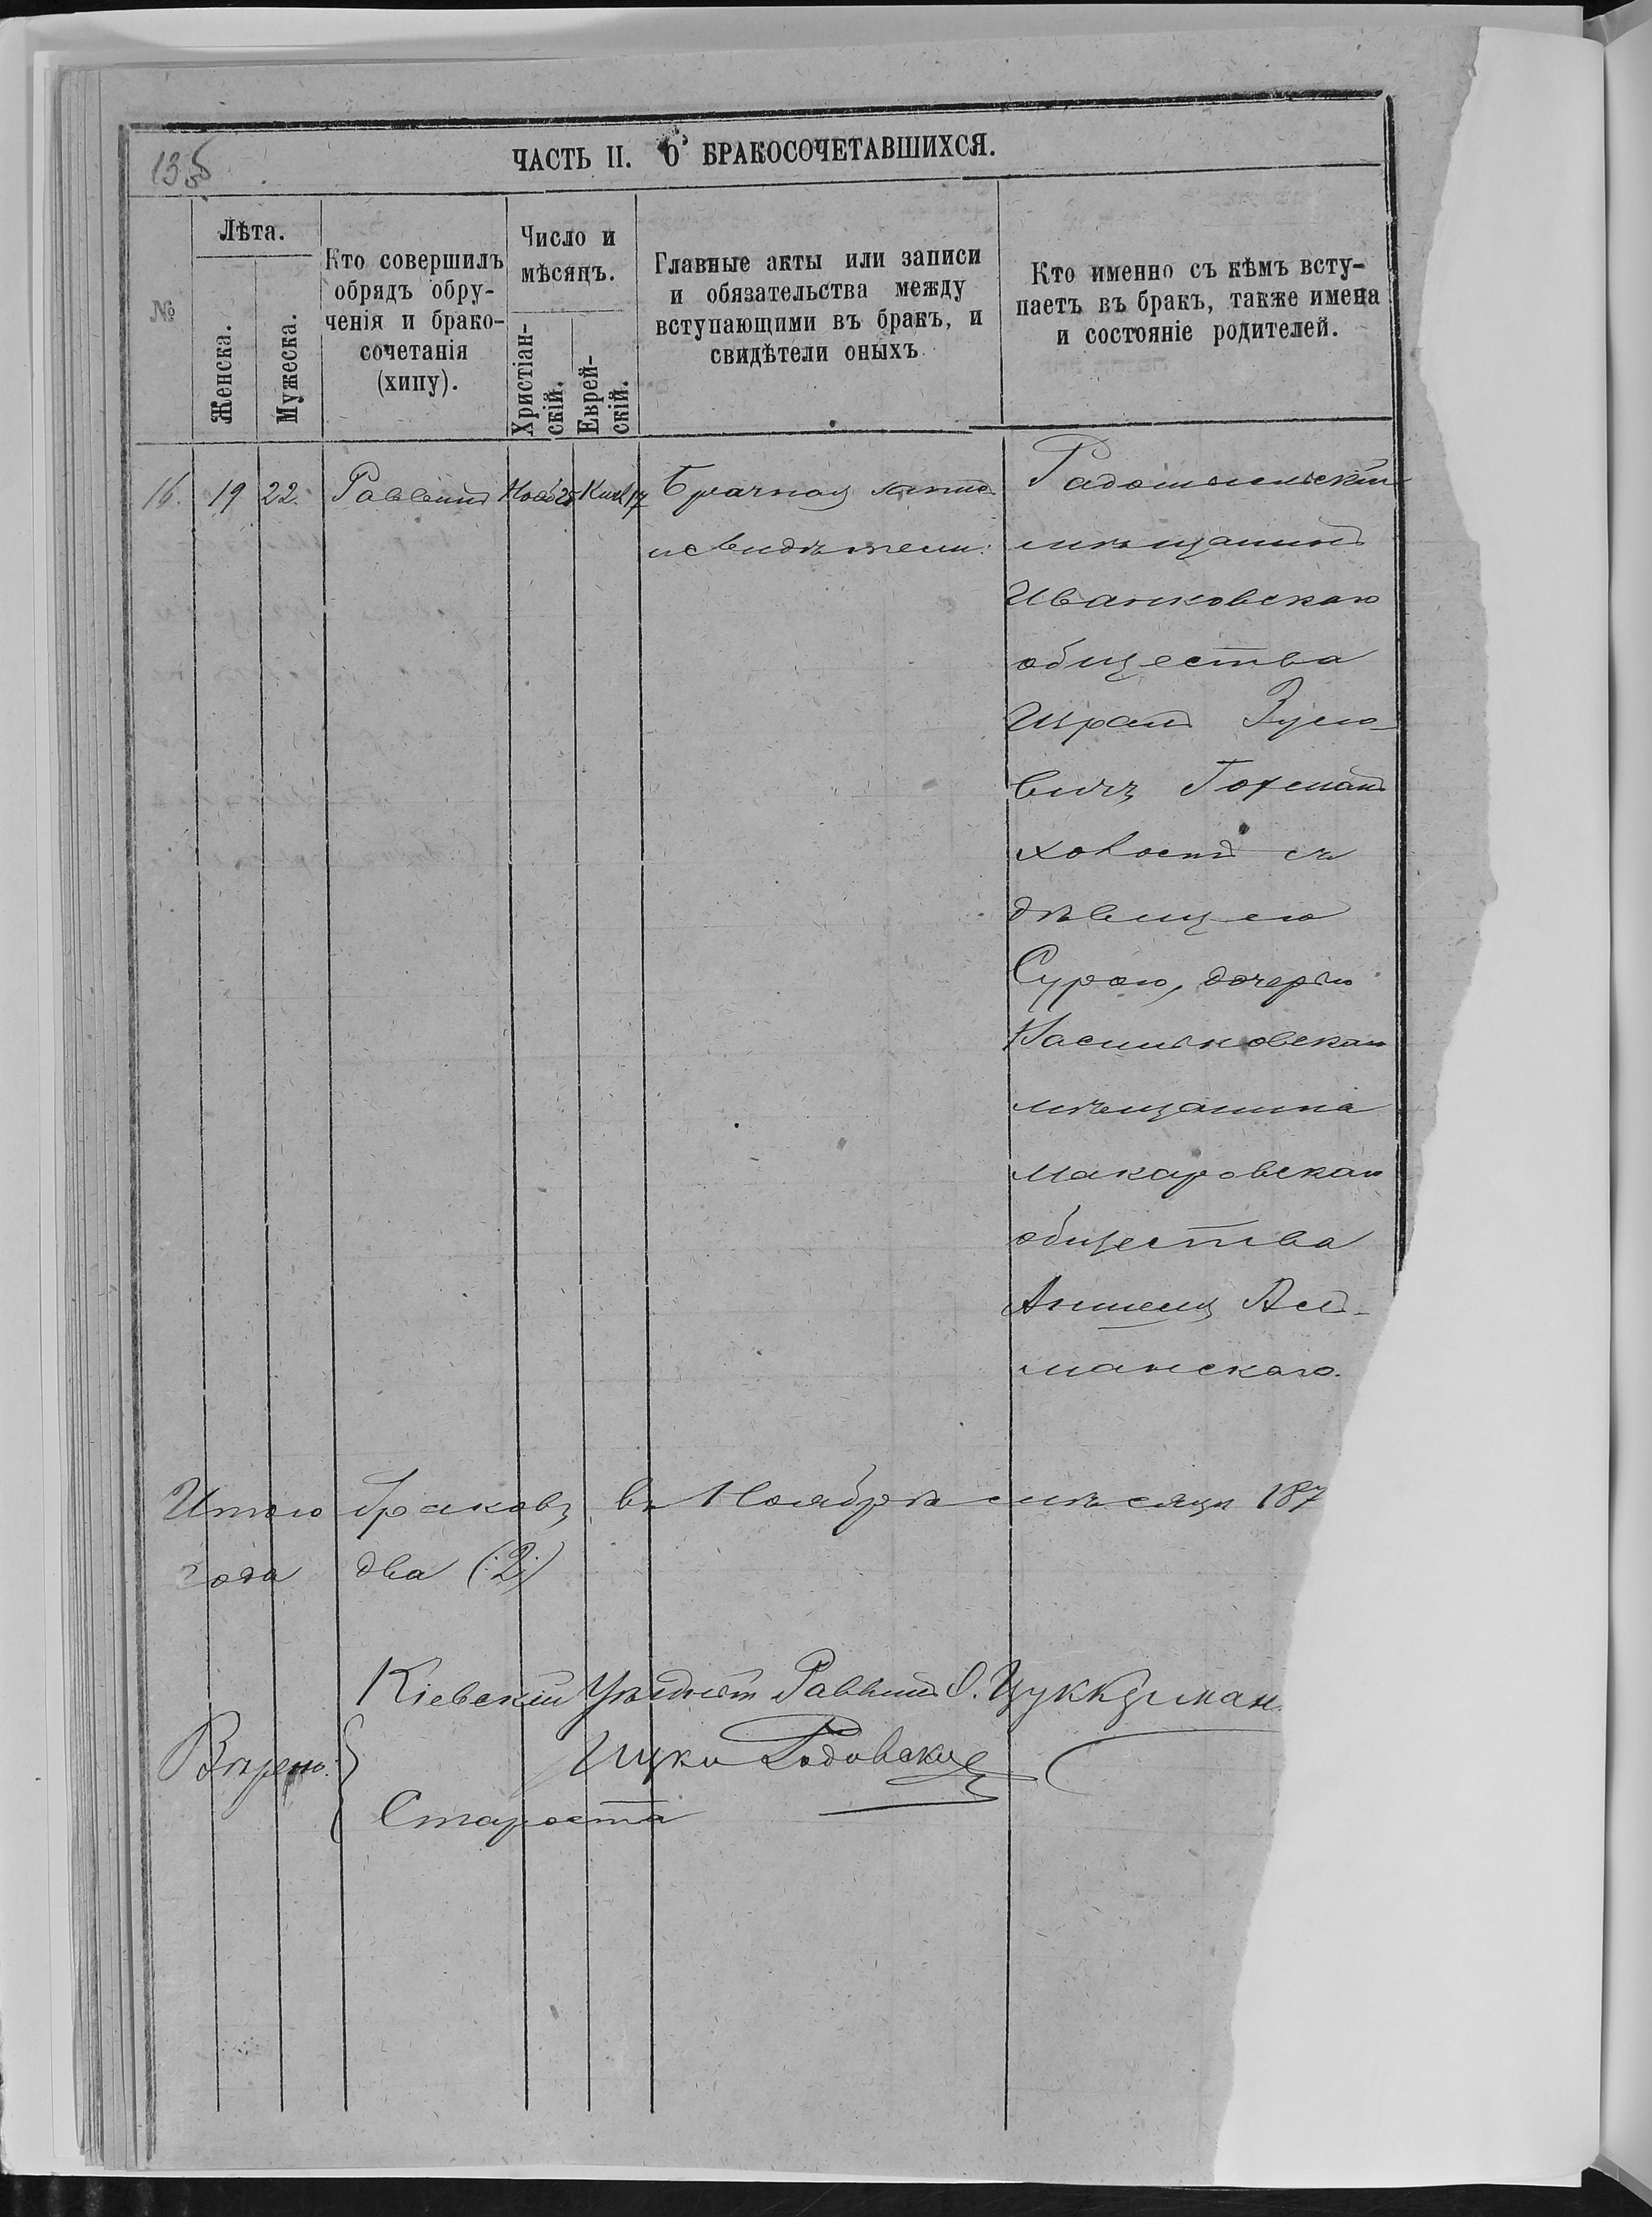 135
ЧАСТЬ II. О БРАКОСОЧЕТАВШИХСЯ.
№
Лѣта.
Женска.
Мужеска.
Кто совершилъ
обрядъ обру-
ченія и брако-
сочетанія
(хипу).
Число и
мѣсяцъ.
Христіан-
скій.
Еврей-
скій.
Главные акты или записи
и обязательства между
вступающими въ бракъ, и
свидѣтели оныхъ
Кто именно съ кѣмъ всту-
паетъ въ бракъ, также имена
и состояніе родителей.
16. 19 22 Раввинъ Нояб 25 Кисл 17 Брачная запис Радомысльскій
и свидѣтели. мѣщанинъ
Иванковскаго
общества
Шраль Зусо-
вичъ Гохманъ
холостъ съ
дѣвицею
Сурою, дочерью
Васильковскаго
мѣщанина
Макаровскаго
общества
Аншеля
манскаго.
Итого браковъ въ Ноябрѣ мѣсяцѣ 187
года два (2)
Кіевскій Уѣздный Раввинъ О. Цуккерман
Вѣрно: Ицко Радовский
Староста